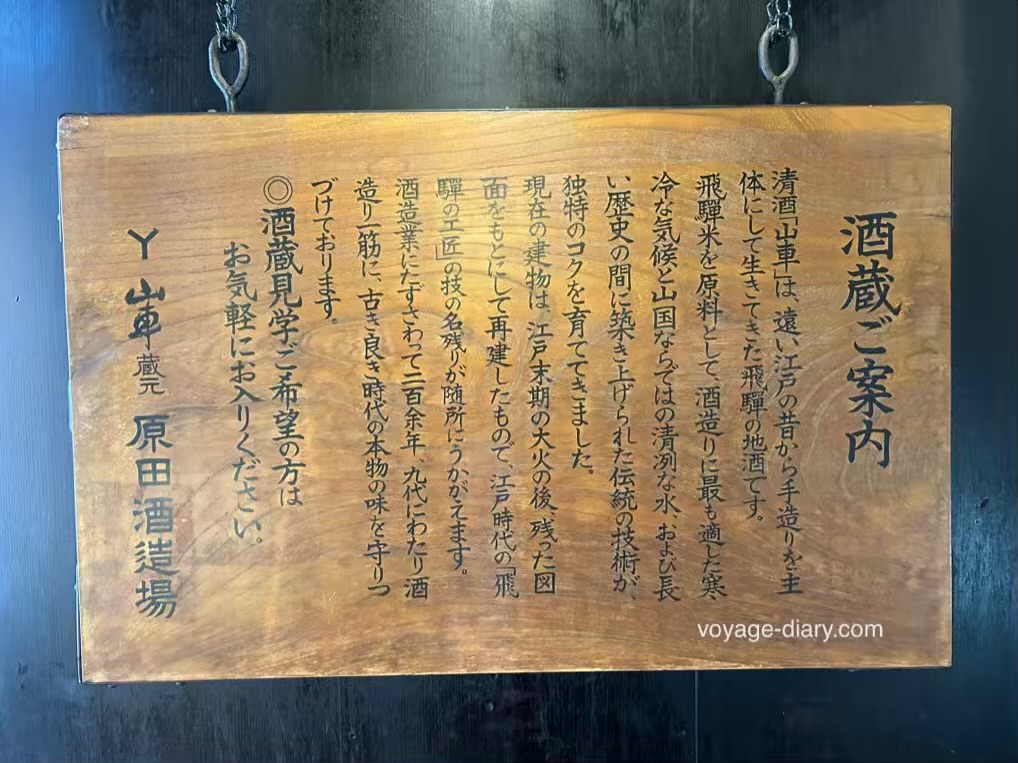 酒蔵ご案内
清酒「山車」は、遠い江戸の昔から手造りを主
体にして生きてきた飛騨の地酒です。
飛騨米を原料として、酒造りに最も適した寒
冷な気候と山国ならではの清冽な水、および長
い歴史の間に築き上げられた伝統の技術が、
独特のコクを育ててきました。
現在の建物は、江戸末期の大火の後、残った図
面をもとにして再建したもので、江戸時代の「飛
騨の工匠」の技の名残りが随所にうかがえます。
酒造業にたずさわって二百余年、九代にわたり酒
造り一筋に、古き良き時代の本物の味を守りつ
づけております。
◎酒蔵見学ご希望の方は
お気軽にお入りください。
丫 山車 蔵元 原田酒造場
voyage-diary.com